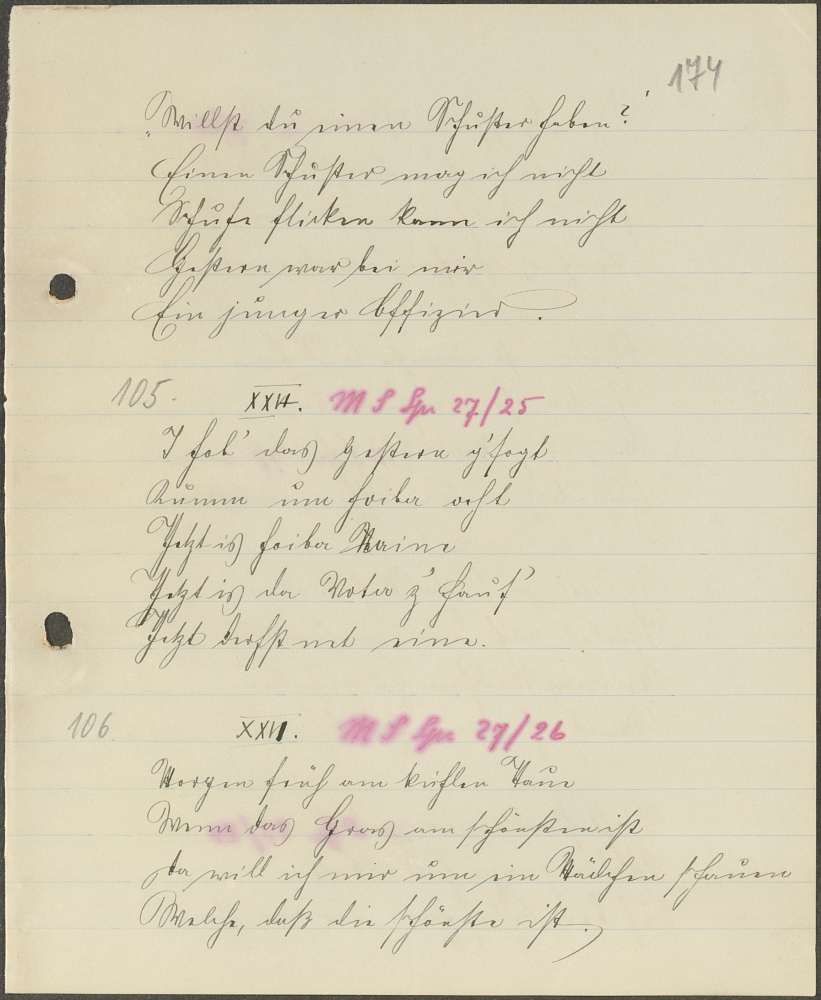 174
„Willst du einen Schuster haben?"
Einen Schuster mag ich nicht
Schuhe flicken kann ich nicht
Gestern war bei mir
Ein junger Offizier.
105. XXVI. M S Spr 27/25
I hob' das gestern g'sogt
Kumm um holber ocht
Jetzt is holber Naine
Jetzt is da Voter z' Haus'
Jetzt derfst net eine.
106. XXVII. M S Spr 27/26
Morgen früh am kühlen Taue
Wenn das Gras am schönsten ist
Da will ich mir um ein Mädchen schauen
Welche, daß die schönste ist.